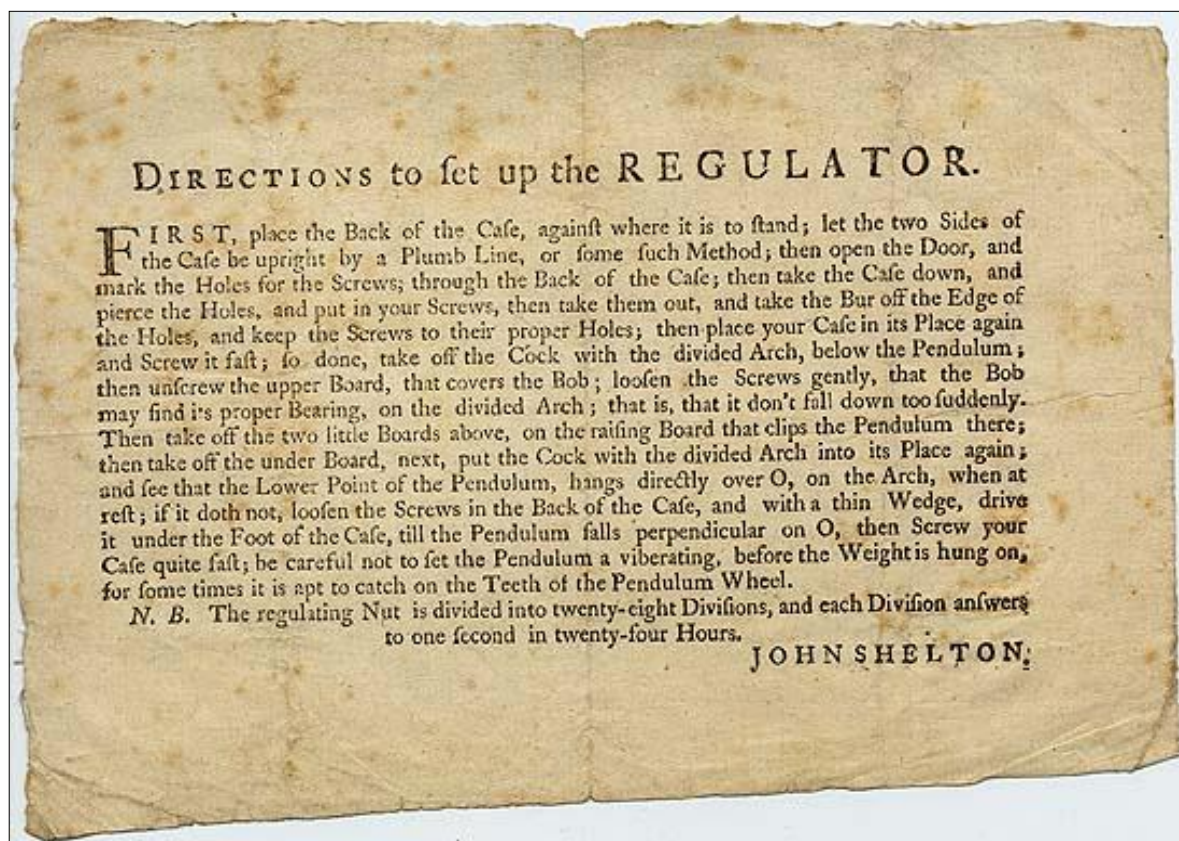 DIRECTIONS to ſet up the REGULATOR.
FIRST, place the Back of the Caſe, againſt where it is to ſtand; let the two Sides of
the Caſe be upright by a Plumb Line, or ſome ſuch Method; then open the Door, and
mark the Holes for the Screws; through the Back of the Caſe; then take the Caſe down, and
pierce the Holes, and put in your Screws, then take them out, and take the Bur off the Edge of
the Holes, and keep the Screws to their proper Holes; then place your Caſe in its Place again
and Screw it faſt; ſo done, take off the Cock with the divided Arch, below the Pendulum;
then unſcrew the upper Board, that covers the Bob; looſen the Screws gently, that the Bob
may find i's proper Bearing, on the divided Arch; that is, that it don't fall down too ſuddenly.
Then take off the two little Boards above, on the raiſing Board that clips the Pendulum there;
then take off the under Board, next, put the Cock with the divided Arch into its Place again;
and ſee that the Lower Point of the Pendulum, hangs directly over O, on the Arch, when at
reſt; if it doth not, looſen the Screws in the Back of the Caſe, and with a thin Wedge, drive
it under the Foot of the Caſe, till the Pendulum falls perpendicular on O, then Screw your
Caſe quite faſt; be careful not to ſet the Pendulum a viberating, before the Weight is hung on,
for ſome times it is apt to catch on the Teeth of the Pendulum Wheel.
N. B. The regulating Nut is divided into twenty-eight Diviſions, and each Diviſion anſwers
to one ſecond in twenty-four Hours.
JOHN SHELTON.